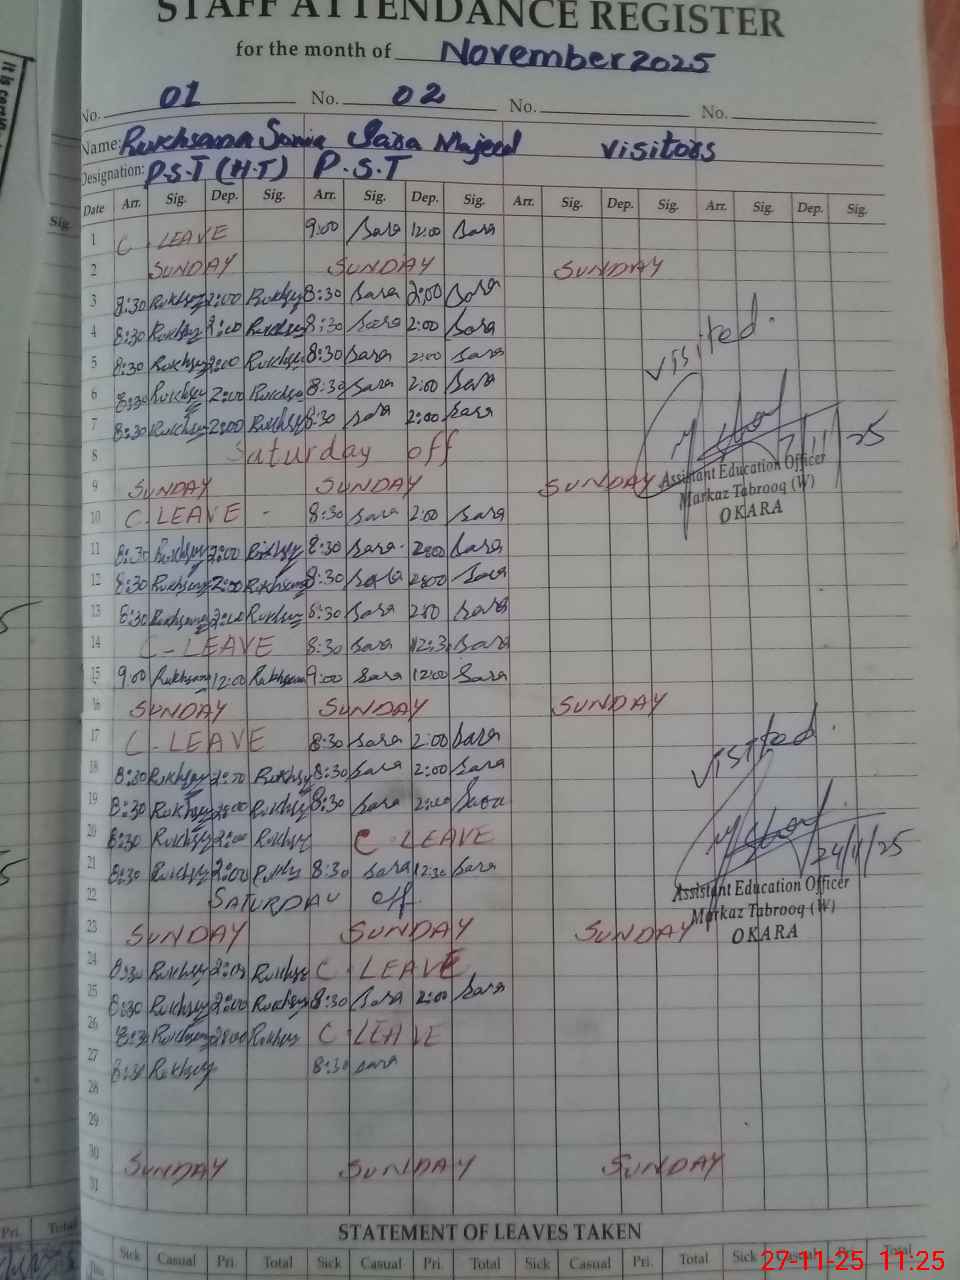 STAFF ATTENDANCE REGISTER
for the month of November 2025
No. 01 No. 02 No. No.
Name: Rukhsana Sonia Sara Majeed visitors
Designation: P.S.T (H.T) P.S.T
Date Arr. Sig. Dep. Sig. Arr. Sig. Dep. Sig. Arr. Sig. Dep. Sig. Arr. Sig. Dep. Sig.
1 C. LEAVE 9:00 Sara 12:00 Sara
2 SUNDAY SUNDAY SUNDAY
3 8:30 Rukhsy 2:00 Rukhsy 8:30 Sara 2:00 Sara
4 8:30 Rukhsy 2:00 Rukhsy 8:30 Sara 2:00 Sara
5 8:30 Rukhsy 2:00 Rukhsy 8:30 Sara 2:00 Sara
visited.
6 8:30 Rukhsy 2:00 Rukhsy 8:30 Sara 2:00 Sara
7 8:30 Rukhsy 2:00 Rukhsy 8:30 Sara 2:00 Sara
7/11/25
8 Saturday off
Assistant Education Officer
Markaz Tabrooq (W)
OKARA
9 SUNDAY SUNDAY SUNDAY
10 C. LEAVE - 8:30 Sara 2:00 Sara
11 8:30 Rukhsy 2:00 Rukhsy 8:30 Sara 2:00 Sara
12 8:30 Rukhsana 2:00 Rukhsana 8:30 Sara 2:00 Sara
13 8:30 Rukhsana 2:00 Rukhsy 8:30 Sara 2:00 Sara
14 C - LEAVE 8:30 Sara 12:3 Sara
15 9:00 Rukhsana 12:00 Rukhsana 9:00 Sara 12:00 Sara
16 SUNDAY SUNDAY SUNDAY
17 C - LEAVE 8:30 Sara 2:00 Sara
visited.
18 8:30 Rukhsy 2:00 Rukhsy 8:30 Sara 2:00 Sara
19 8:30 Rukhsy 2:00 Rukhsy 8:30 Sara 2:00 Sara
20 8:30 Rukhsy 2:00 Rukhsy C. LEAVE
24/11/25
21 8:30 Rukhsy 2:00 Rukhsy 8:30 Sara 12:30 Sara
22 SATURDAY off.
Assistant Education Officer
Markaz Tabrooq (W)
OKARA
23 SUNDAY SUNDAY SUNDAY
24 8:30 Rukhsy 2:00 Rukhsy C. LEAVE
25 8:30 Rukhsy 2:00 Rukhsy 8:30 Sara 2:00 Sara
26 8:3 Rukhsana 2:00 Rukhsy C LEAVE
27 8:30 Rukhsy 8:30 Sara
28
29
30 SUNDAY SUNDAY SUNDAY
31
STATEMENT OF LEAVES TAKEN
Sick Casual Pri. Total Sick Casual Pri. Total Sick Casual Pri. Total
27-11-25 11:25